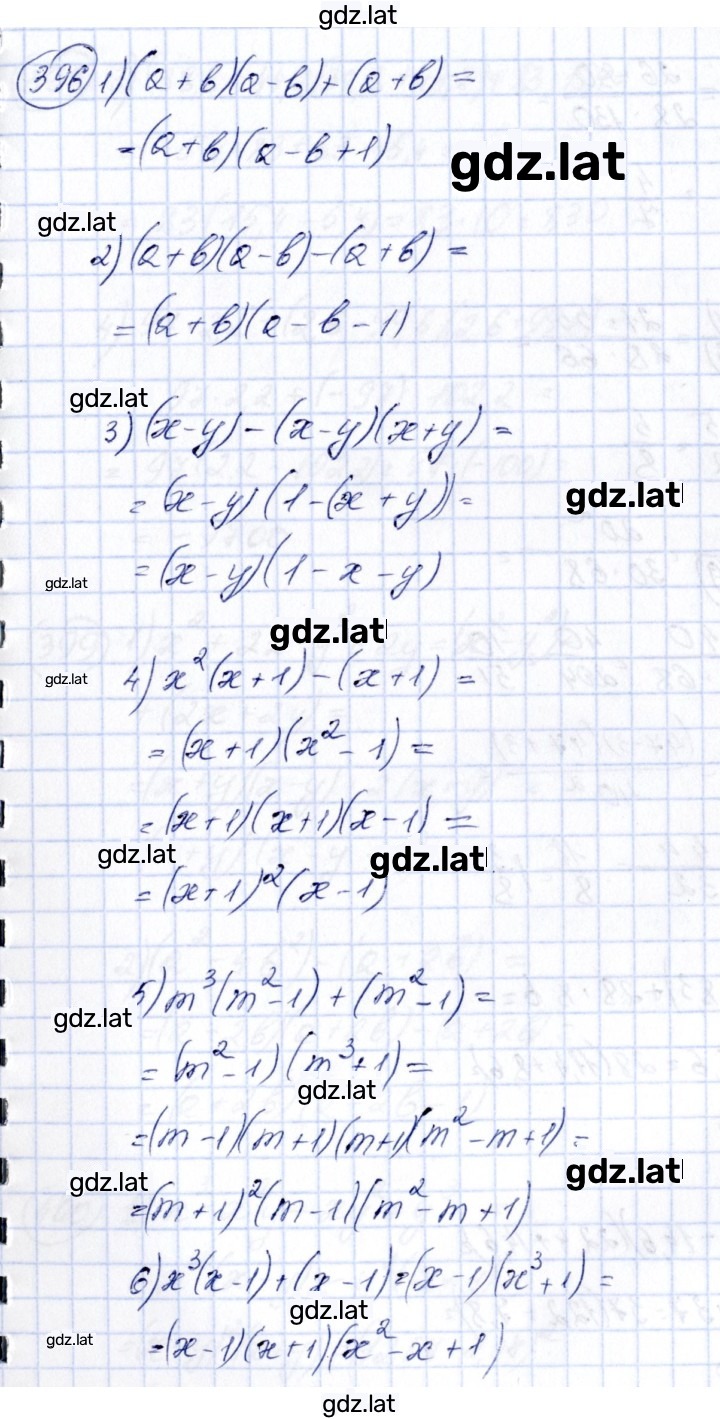 gdz.lat
396 1) (a + b)(a - b) + (a + b) =
= (a + b)(a - b + 1)
gdz.lat
gdz.lat
2) (a + b)(a - b) - (a + b) =
= (a + b)(a - b - 1)
gdz.lat
3) (x - y) - (x - y)(x + y) =
= (x - y)(1 - (x + y)) =
gdz.lat
= (x - y)(1 - x - y)
gdz.lat
gdz.lat
4) x²(x + 1) - (x + 1) =
gdz.lat
= (x + 1)(x² - 1) =
= (x + 1)(x + 1)(x - 1) =
gdz.lat
gdz.lat
= (x + 1)²(x - 1)
5) m³(m² - 1) + (m² - 1) =
gdz.lat
= (m² - 1)(m³ + 1) =
gdz.lat
= (m - 1)(m + 1)(m + 1)(m² - m + 1) =
gdz.lat
gdz.lat
= (m + 1)²(m - 1)(m² - m + 1)
6) x³(x - 1) + (x - 1) = (x - 1)(x³ + 1) =
gdz.lat
gdz.lat
= (x - 1)(x + 1)(x² - x + 1)
gdz.lat